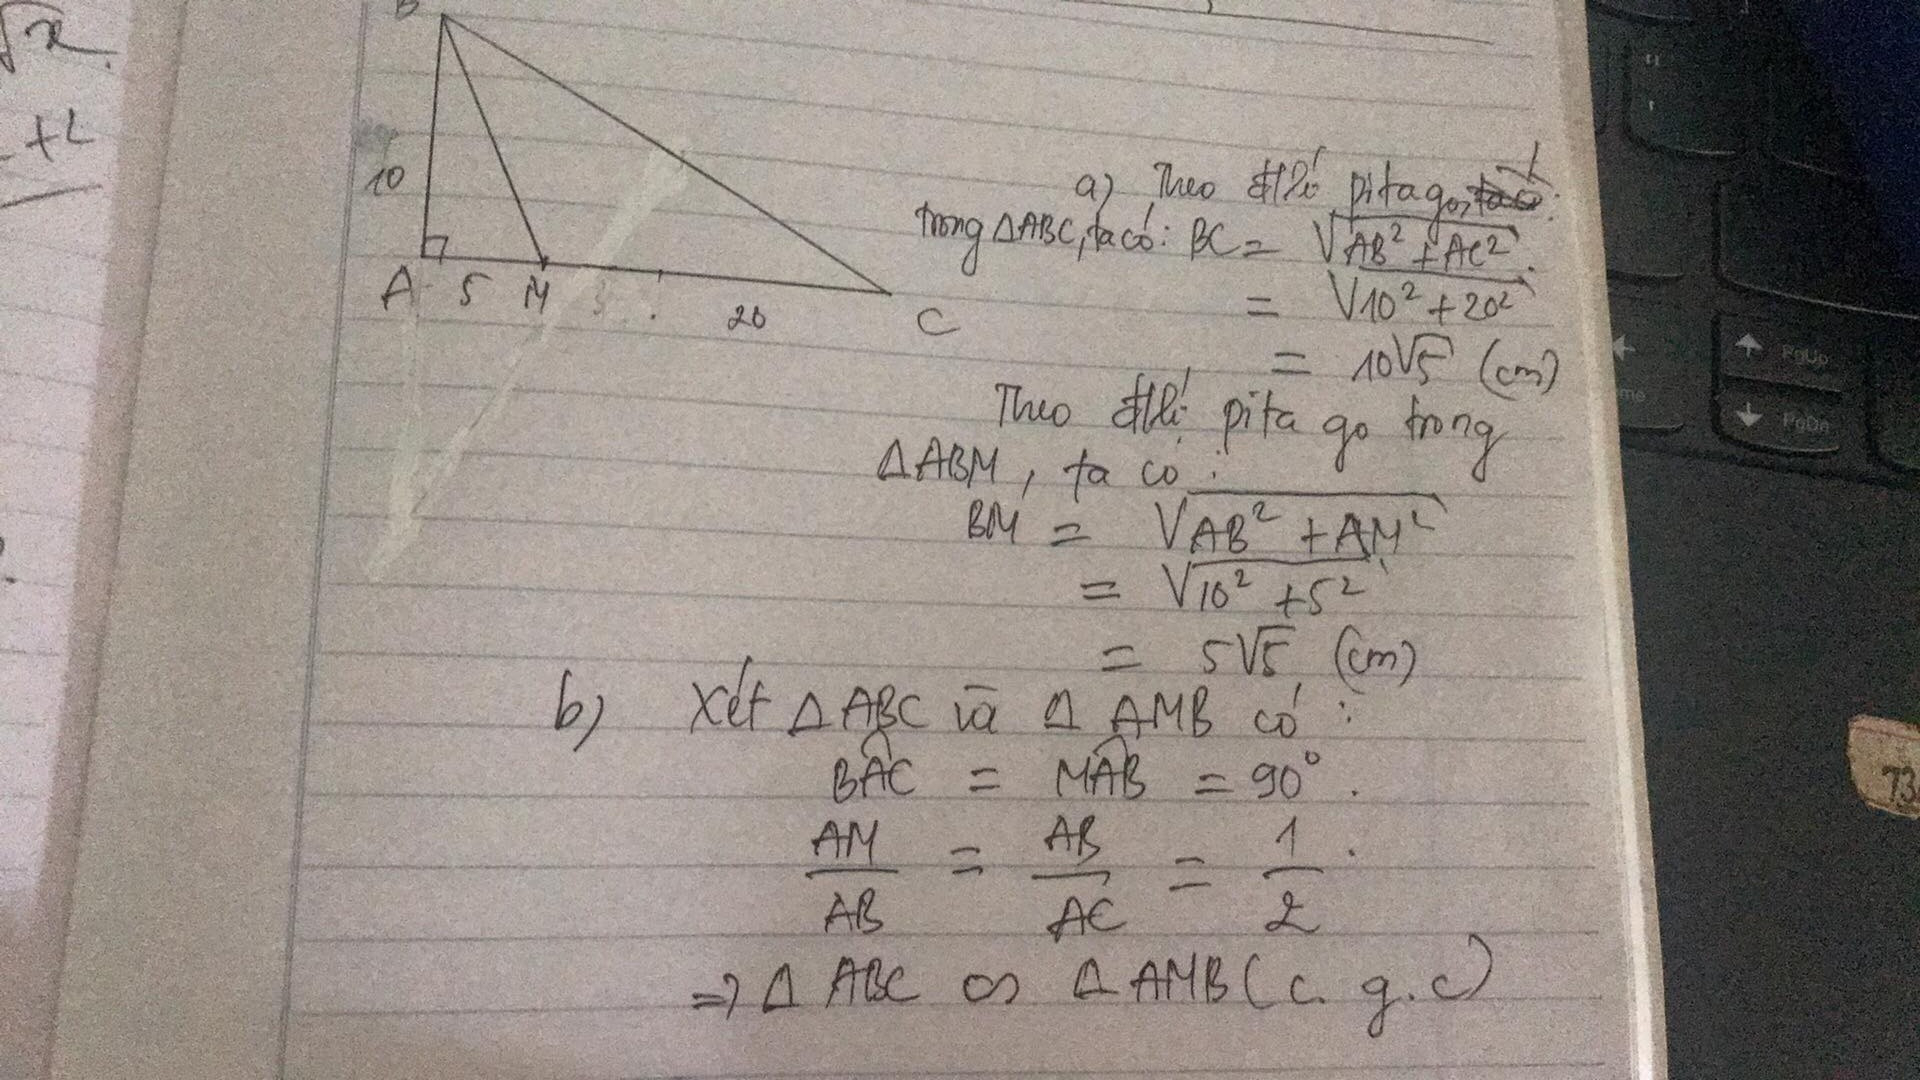 √x
+2
B
10
A 5 M 20 C
a) Theo đlí pitago,
trong ΔABC, ta có: BC = √AB² + AC²
= √10² + 20²
= 10√5 (cm)
Theo đlí pita go trong
ΔABM, ta có:
BM = √AB² + AM²
= √10² + 5²
= 5√5 (cm)
b) Xét ΔABC và Δ AMB có:
BAC = MAB = 90°.
AM/AB = AB/AC = 1/2.
=> Δ ABC ∽ Δ AMB (c.g.c)
PgUp
PgDn
73